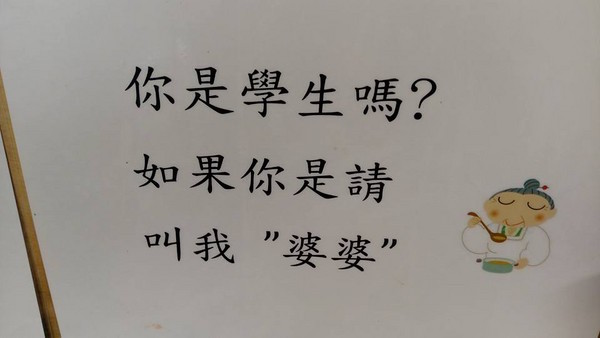 你是學生嗎?
如果你是請
叫我 ”婆婆”